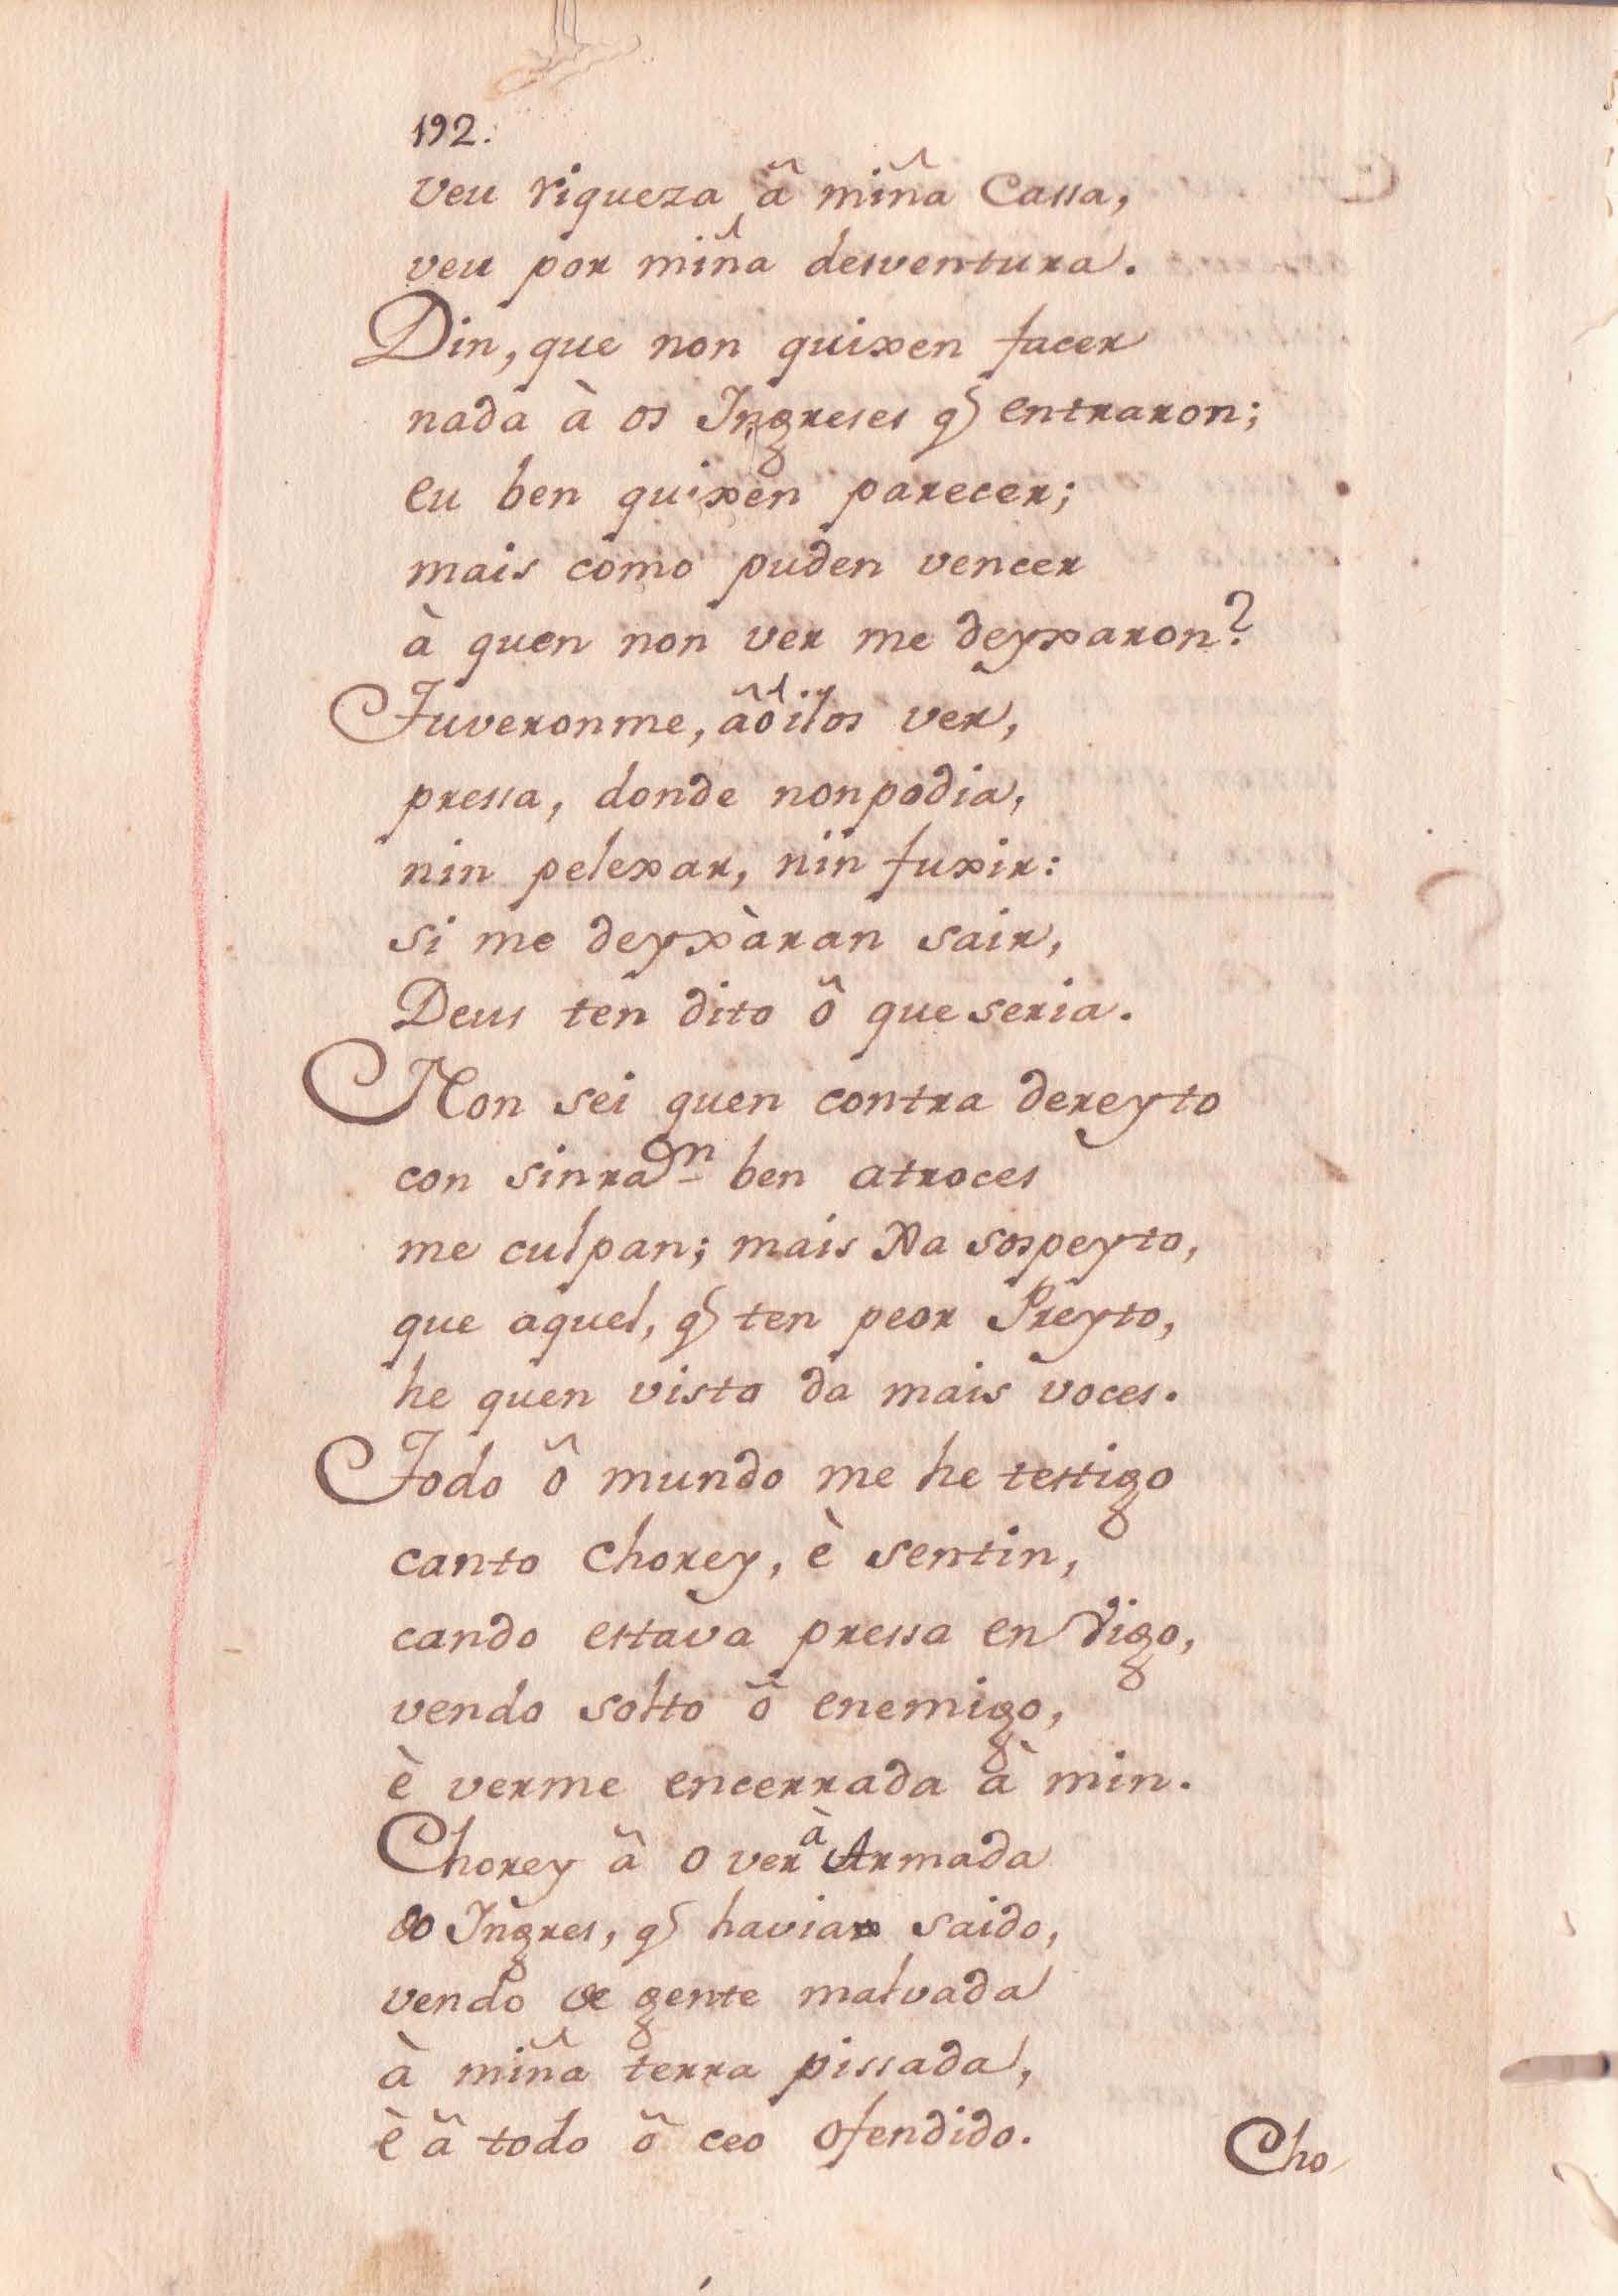 192.
veu riqueza â miña Cassa,
veu por miña desventura.
Din, que non quixen facer
nada à os Ingreses q̃ entraron;
eu ben quixen parecer;
mais como puden vencer
à quen non ver me deyxaron?
Tuveronme, âô ilos ver,
pressa, donde non podia,
nin pelexar, nin fuxir:
si me deyxàran sair,
Deus ten dito ô que seria.
Non sei quen contra dereyto
con sinraõn ben atroces
me culpan; mais Xa sospeyto,
que aquel, q̃ ten peor Preyto,
he quen visto da mais voces.
Todo ô mundo me he testigo
canto chorey, è sentin,
cando estava pressa en Vigo,
vendo solto ô enemigo,
è verme encerrada à min.
Chorey â o ver à Armada
do Ingres, q̃ havia saido,
vendo de gente malvada
à miña terra pissada,
è â todo ô ceo ofendido.
Cho